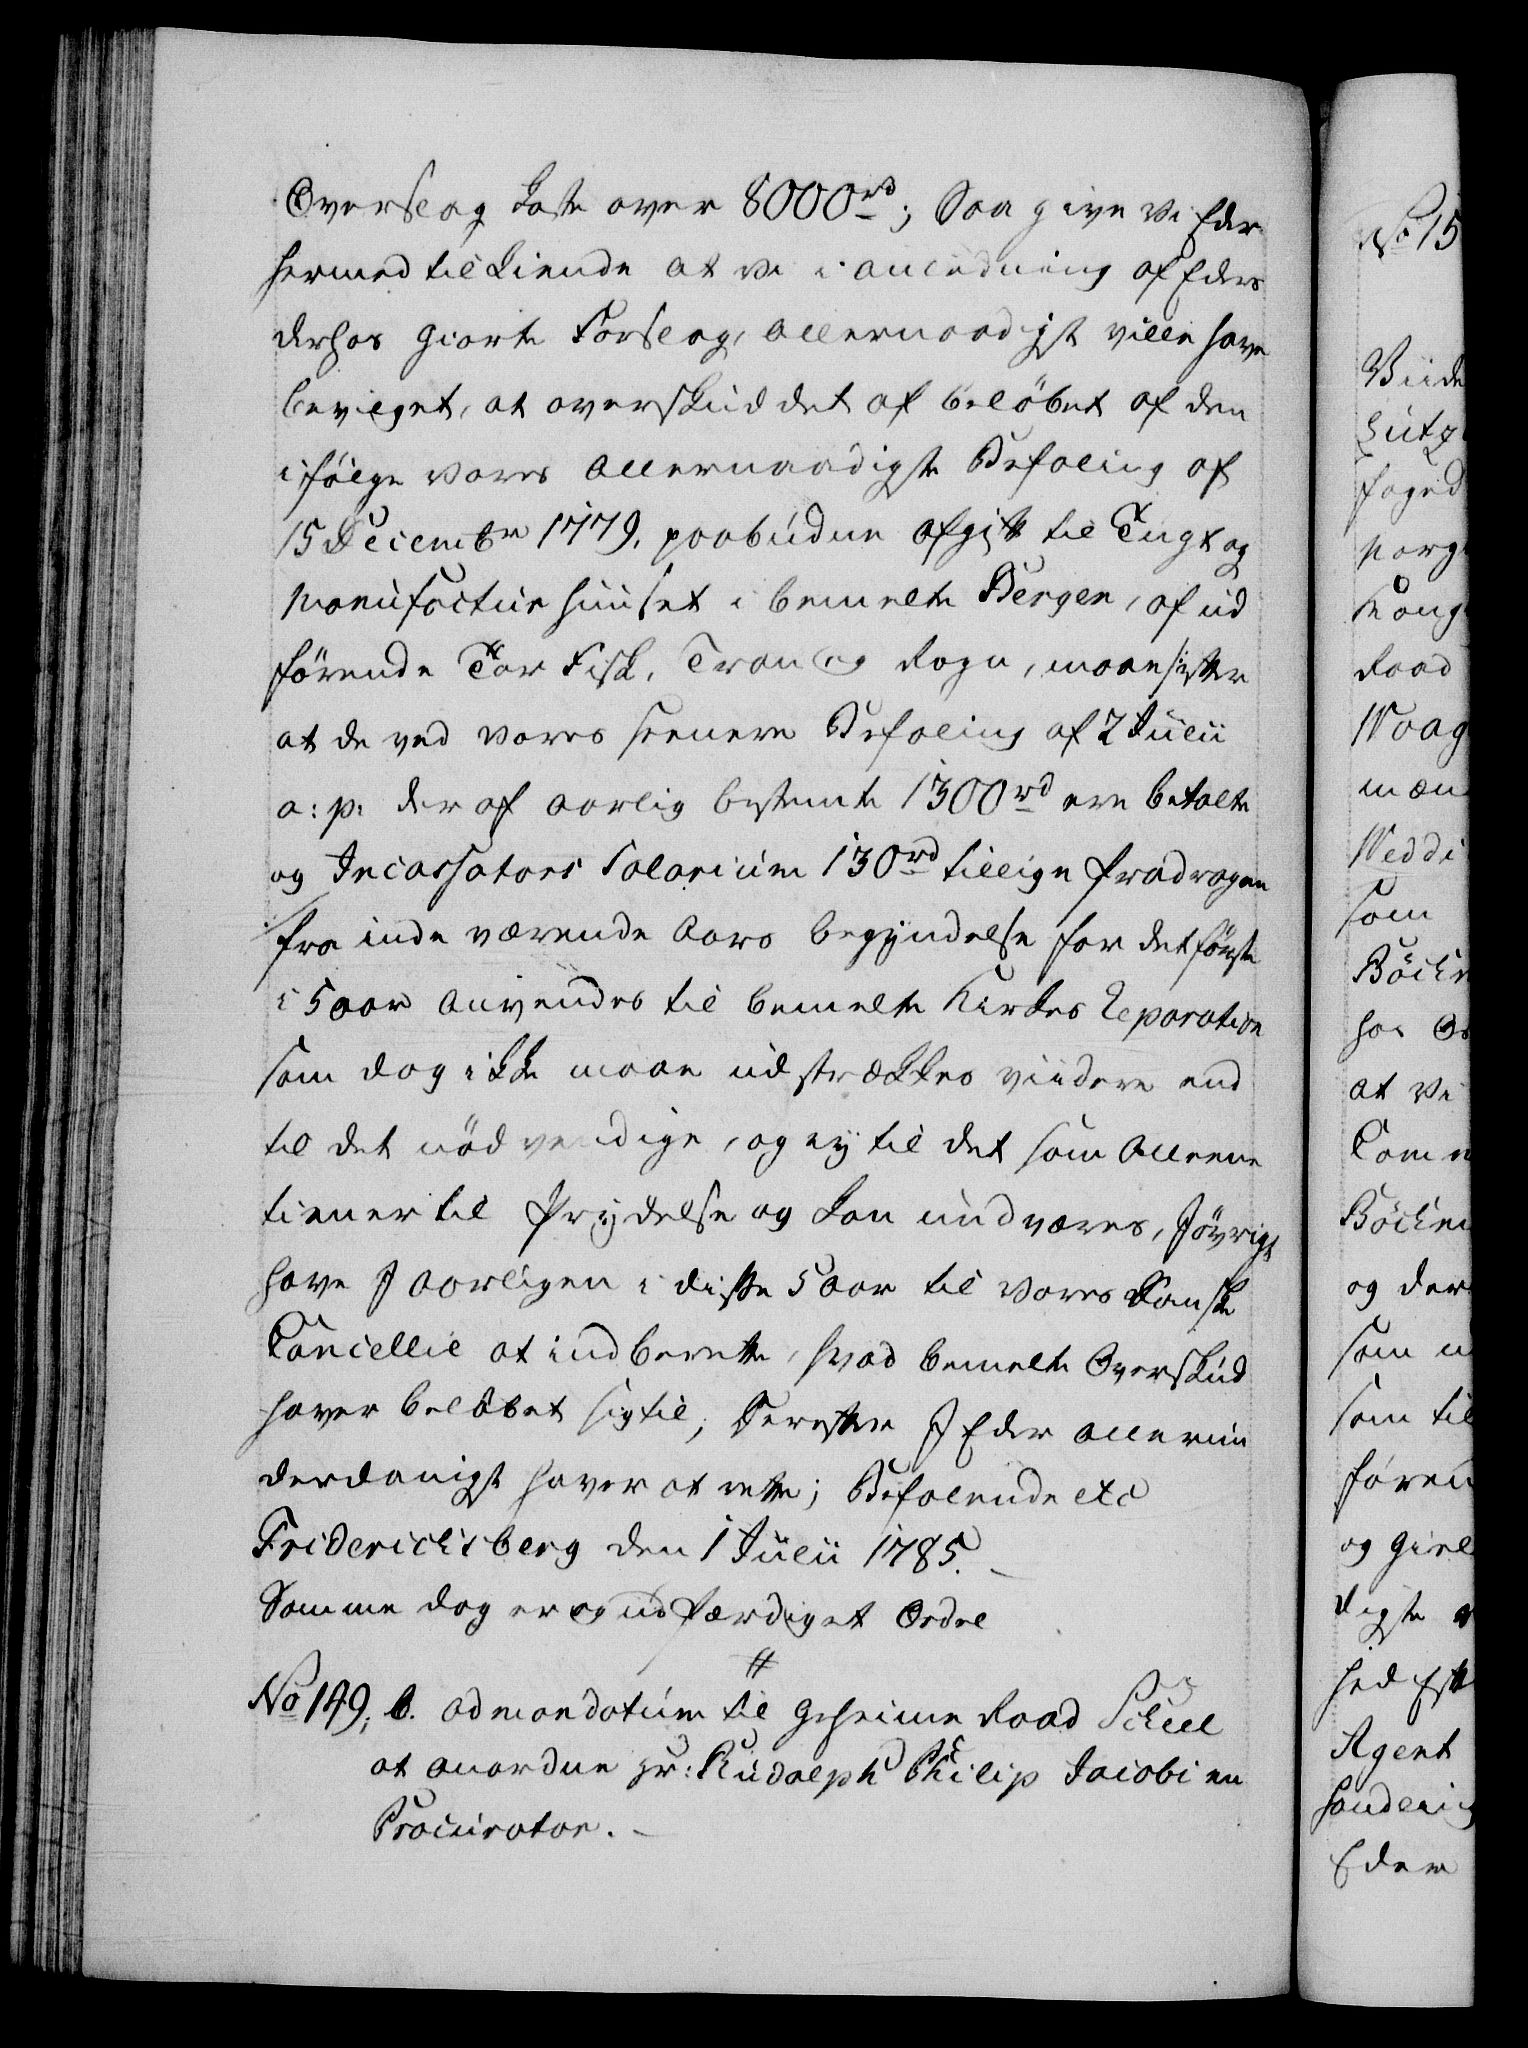 Overslag koste over 8000 rd; Saa give Vi Eder
hermed tilkiende at vi i anledning af Eders
derhos giorte Forslag, allernaadigst ville have
bevilget, at overskuddet af beløbet af den
ifølge vores allernaadigste Befaling af
15 Decembr 1779. paabudne afgift til Tugt og
Manufactur huuset i bemelte Bergen, af ud
førende Tør Fisk, Tran og Rogn, maae, efter
at de ved vores seenere Befaling af 2 Julii
a: p: der af aarlig bestemte 1300 rd ere betalte
og Incassators Salarium 130 rd tillige fradragen
fra inde værende Aars begyndelse for det første
i 5 aar anvendes til bemelte Kirkes Reparation
som dog ikke maae udstrækkes viidere end
til det nødvendige, og ey til det som alleene
tiener til Prydelse og kan undværes, Jøvrigt
have J aarligen i disse 5 aar til vores Danske
Cancellie at indberette, hvad bemelte Overskud
haver beløbet sig til; Derefter J Eder allerun
derdanigst haver at rette; Befalende etc
Friderichsberg den 1 Julii 1785.
Samme dag er og udfærdiget Ordre
No 149, b. ad mandatum til Geheime Raad Scheel
at anordne Hr: Rudolph Philip Jacobi en
Procurator.
No 15
Viide
Lütz
foged
Norg
Kong
Raad
Waag
mæn
Weddi
som
Böckm
hos Os
at Vi
Com
Böckm
og der
som
som til
føren
og givel
digste
hed Eft
Agent
handling
Eder